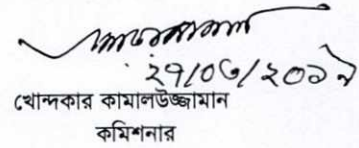 ২৭/০৩/২০১৯
খোন্দকার কামালউজ্জামান
কমিশনার